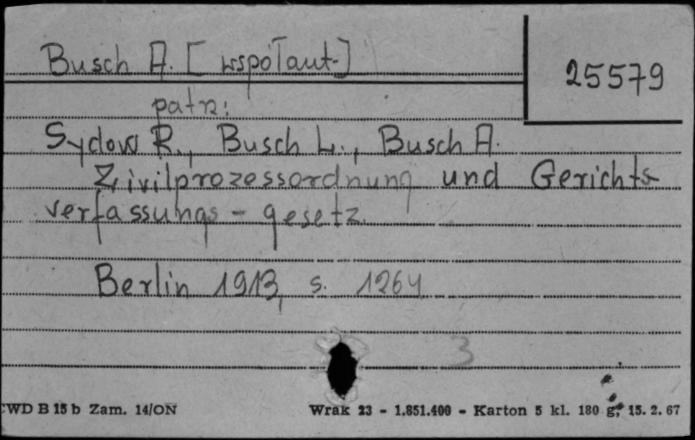 Busch A. [współaut.]
25579
patrz:
Sydow R., Busch L., Busch A.
Zivilprozessordnung und Gerichts-
verfassungs - gesetz.
Berlin 1913, s. 1264
3
CWD B 15 b Zam. 14/ON
Wrak 23 - 1.851.400 - Karton 5 kl. 180 g, 15. 2. 67